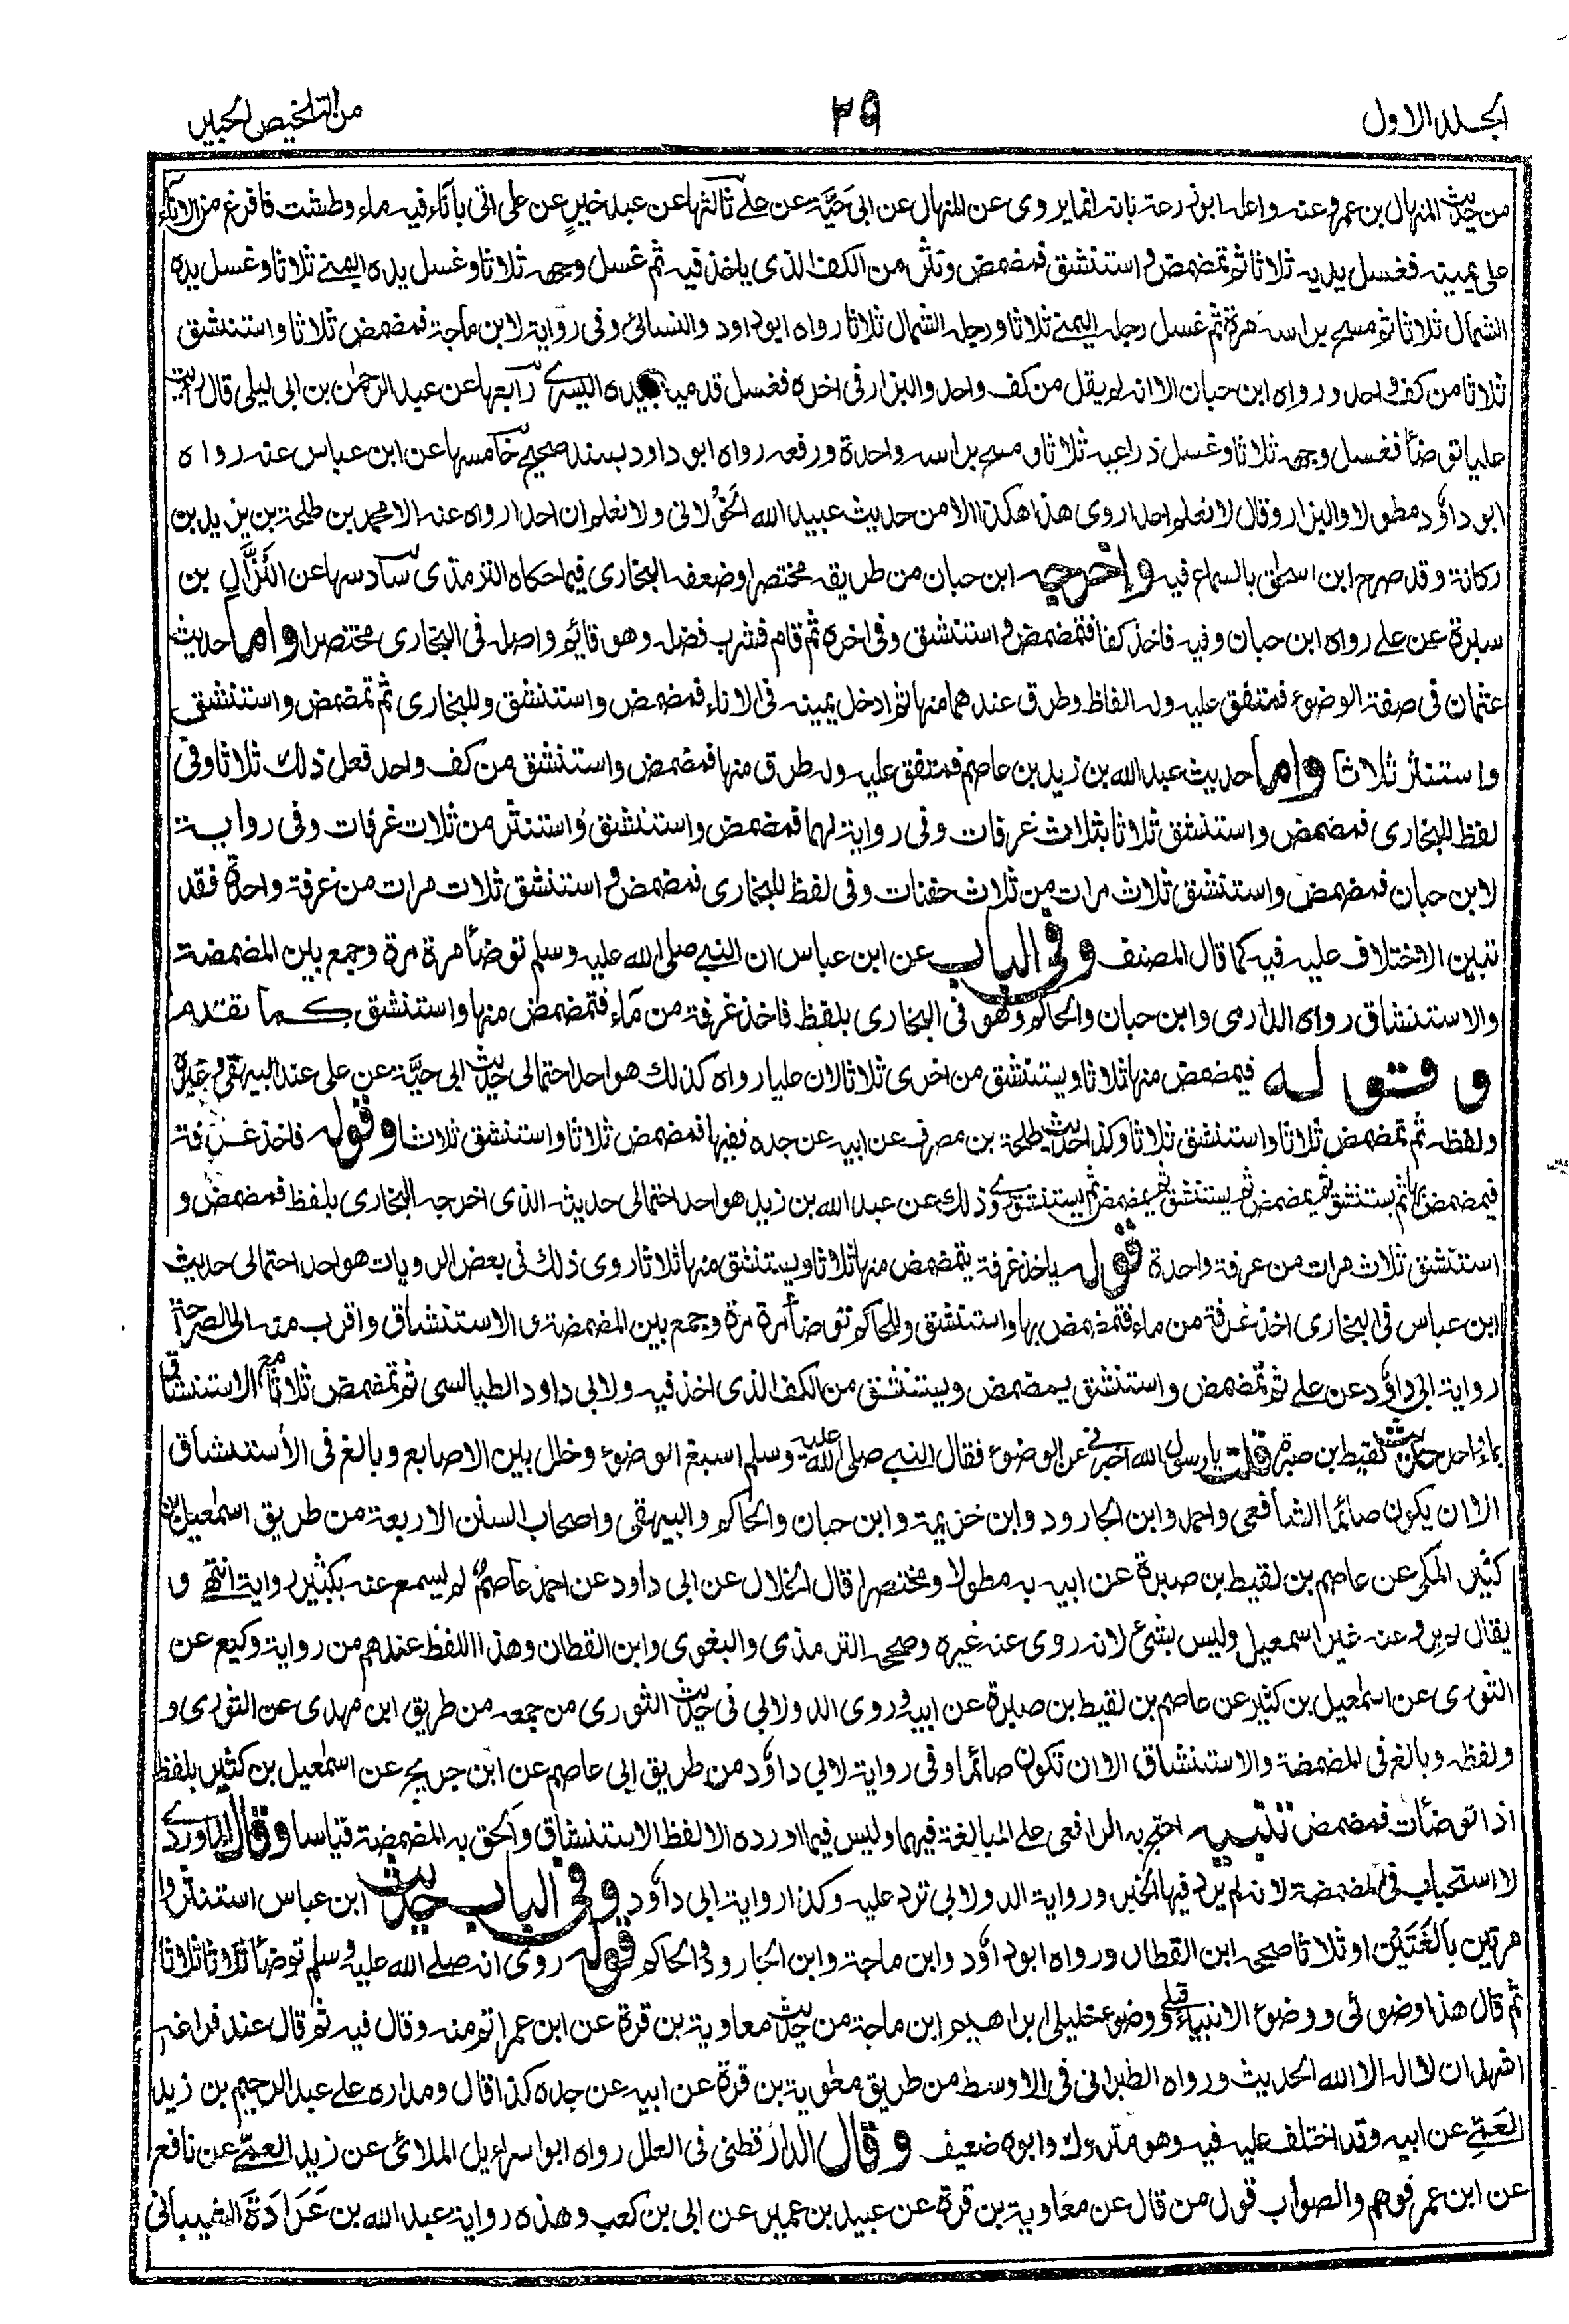 الجلد الاول
٢٩
من التلخيص الحبير
من حديث المنهال بن عمرو عنه واعله ابو زرعة بانه انما يروى عن المنهال عن ابى حَيَّة عن على ثالثها عن عبد خيرٍ عن على اتى باناء فيه ماء وطشت فافرغ من الاناء
على يمينه فغسل يديه ثلاثا ثم تمضمض و استنشق فمضمض ونثر من الكف الذى ياخذ فيه ثم غسل وجهه ثلاثا وغسل يده اليمنى ثلاثا وغسل يده
الشمال ثلاثا ثم مسح براسه مرة ثم غسل رجله اليمنى ثلاثا ورجله الشمال ثلاثا رواه ابو داود والنسائى وفى رواية لابن ماجة فمضمض ثلاثا واستنشق
ثلاثا من كف واحد ورواه ابن حبان الا انه لم يقل من كف واحد والبزار فى اخره فغسل قدميه بيده اليسرى رابعها عن عبد الرحمن بن ابى ليلى قال رايت
عليا توضأ فغسل وجهه ثلاثا وغسل ذراعيه ثلاثا ومسح براسه واحدة ورفعه رواه ابو داود بسند صحيح خامسها عن ابن عباس عنه رواه
ابو داؤد مطولا والبزار وقال لا نعلم احدا روى هذا هكذا الا من حديث عبيد الله الخَوْلانى ولا نعلم ان احدا رواه عنه الا محمد بن طلحة بن يزيد بن
ركانة وقد صرح ابن اسحٰق بالسماع فيه واخرجه ابن حبان من طريقه مختصرا وضعفه البخارى فيما حكاه الترمذى سادسها عن النَّزَّالِ بن
سبرة عن على رواه ابن حبان وفيه فاخذ كفا فتمضمض و استنشق وفى اخره ثم قام فشرب فضله وهو قايم واصله فى البخارى مختصرا واما حديث
عثمان فى صفة الوضوء فمتفق عليه وله الفاظ وطرق عندهما منها ثم ادخل يمينه فى الاناء فمضمض واستنشق وللبخارى ثم تمضمض واستنشق
واستنثر ثلاثا واما حديث عبد الله بن زيد بن عاصم فمتفق عليه وله طرق منها فمضمض واستنشق من كف واحد فعل ذلك ثلاثا وفى
لفظ للبخارى فمضمض واستنشق ثلاثا بثلاث غرفات وفى رواية لهما فمضمض واستنشق واستنثر من ثلاث غرفات وفى رواية
لابن حبان فمضمض واستنشق ثلاث مرات من ثلاث حفنات وفى لفظ للبخارى فمضمض و استنشق ثلاث مرات من غرفة واحدة فقد
تبين الاختلاف عليه فيه كما قال المصنف وفى الباب عن ابن عباس ان النبى صلى الله عليه وسلم توضأ مرة مرة وجمع بين المضمضة
والاستنشاق رواه الدارمى وابن حبان والحاكم وهو فى البخارى بلفظ فاخذ غرفة من ماء فتمضمض منها واستنشق كما تقدم
وقوله فيمضمض منها ثلاثا ويستنشق من اخرى ثلاثا لان عليا رواه كذلك هو احد احتمالى حديث ابى حيَّة عن على عند البيهقى وغيره
ولفظه ثم تمضمض ثلاثا واستنشق ثلاثا وكذا حديث طلحة بن مصرف عن ابيه عن جده ففيها فمضمض ثلاثا واستنشق ثلاثا وقوله فاخذ غرفة
فيمضمض بها ثم يستنشق ثم يمضمض ثم يستنشق ثم يمضمض ثم يستنشق روى ذلك عن عبد الله بن زيد هو احد احتمالى حديثه الذى اخرجه البخارى بلفظ فمضمض و
استنشق ثلاث مرات من غرفة واحدة قوله ياخذ غرفة يتمضمض منها ثلاثا ويستنشق منها ثلاثا روى ذلك فى بعض الرويات هو احد احتمالى حديث
ابن عباس فى البخارى اخذ غرفة من ماء فتمضمض بها واستنشق وللحاكم توضأ مرة مرة وجمع بين المضمضة و الاستنشاق واقرب منه الى الصراحة
رواية ابى داؤد عن على ثم تمضمض واستنشق يمضمض ويستنشق من الكف الذى اخذ فيه ولابى داود الطيالسى ثم تمضمض ثلاثا مع الاستنشاق
بماء احد حديث لقيط بن صبرة قلت يا رسول الله اخبرنى عن الوضوء فقال النبى صلى الله عليه وسلم اسبغ الوضوء وخلل بين الاصابع وبالغ فى الأستنشاق
الا ان يكون صائما الشافعى واحمد وابن الجارود وابن خزيمة وابن حبان والحاكم والبيهقى واصحاب السنن الاربعة من طريق اسمٰعيل بن
كثير المكى عن عاصم بن لقيط بن صبرة عن ابيه به مطولا ومختصرا قال الخلال عن ابى داود عن احمد عاصم لم يسمع عنه بكثير رواية انتهى و
يقال لم يرو عنه غير اسمعيل وليس بشئ لانه روى عنه غيره وصححه الترمذى والبغوى وابن القطان وهذا اللفظ عندهم من رواية وكيع عن
الثورى عن اسمٰعيل بن كثير عن عاصم بن لقيط بن صبرة عن ابيه وروى الدولابى فى حديث الثورى من جمعه من طريق ابن مهدى عن الثورى و
ولفظه وبالغ فى المضمضة والاستنشاق الا ان تكون صائما وفى رواية لابى داؤد من طريق ابى عاصم عن ابن جريج عن اسمٰعيل بن كثير بلفظ
اذا توضأت فمضمض تنبيه احتج به الرافعى على المبالغة فيهما وليس فيما اورده الا لفظ الاستنشاق والحق به المضمضة قياسا وقال الماوردى
لا استحباب فى المضمضة لانه لم يرد فيها الخبر ورواية الدولابى ترد عليه وكذا رواية ابى داؤد وفى الباب حديث ابن عباس استنثروا
مرتين بالغتين او ثلاثا صححه ابن القطان ورواه ابو داؤد وابن ماجة وابن الجارود والحاكم قوله روى انه صلى الله عليه وسلم توضأ ثلاثا ثلاثا
ثم قال هذا وضوئى ووضوء الانبياء قبلى ووضوء خليلى ابراهيم ابن ماجة من حديث معاوية بن قرة عن ابن عمر اتم منه وقال فيه ثم قال عند فراغه
اشهد ان لا اله الا الله الحديث ورواه الطبرانى فى الاوسط من طريق معٰوية بن قرة عن ابيه عن جده كذا قال ومداره على عبد الرحيم بن زيد
العَمِّى عن ابيه وقد اختلف عليه فيه وهو متروك وابوه ضعيف وقال الدارقطنى فى العلل رواه ابو اسراءيل الملائى عن زيد العمِّى عن نافع
عن ابن عمر فوهم والصواب قول من قال عن معاوية بن قرة عن عبيد بن عمير عن ابى بن كعب وهذه رواية عبد الله بن عَرَادَةَ الشيبانى